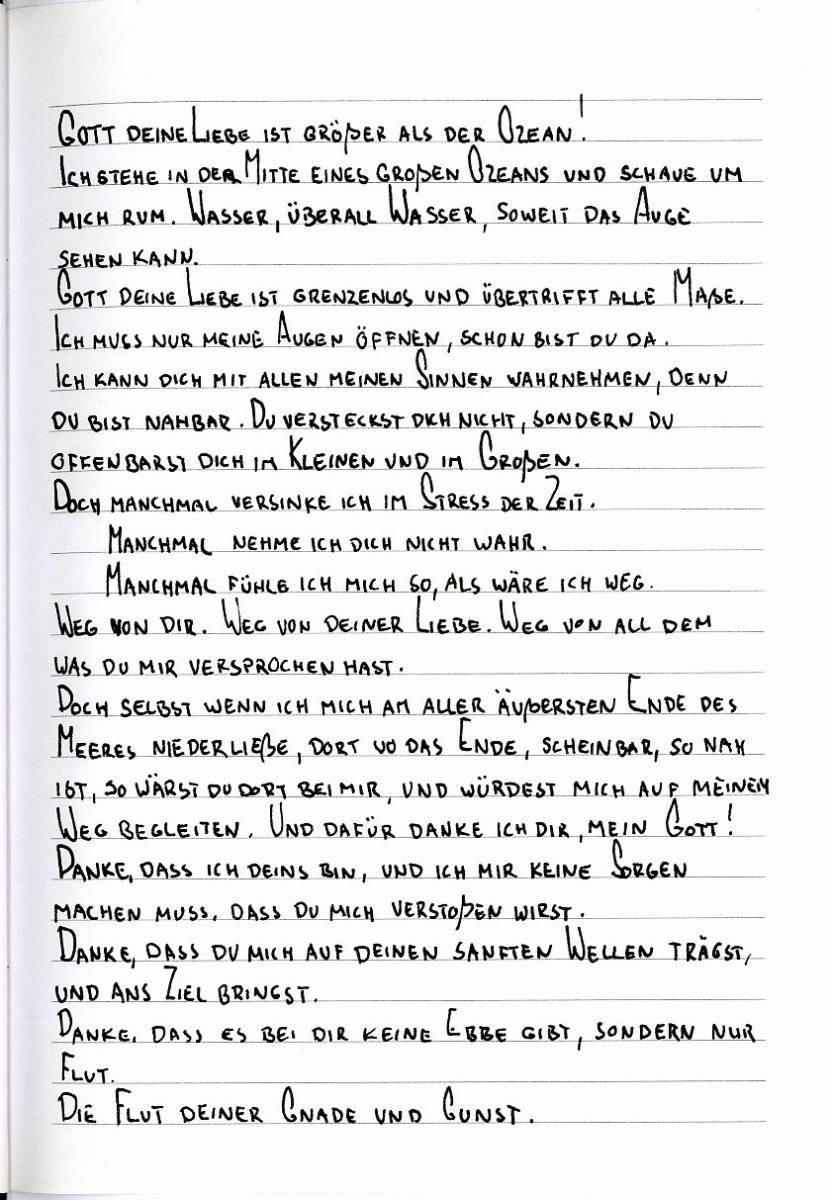 Gott deine Liebe ist größer als der Ozean!
Ich stehe in der Mitte eines großen Ozeans und schaue um
mich rum. Wasser, überall Wasser, soweit das Auge
sehen kann.
Gott deine Liebe ist grenzenlos und übertrifft alle Maße.
Ich muss nur meine Augen öffnen, schon bist du da.
Ich kann dich mit allen meinen Sinnen wahrnehmen, denn
du bist nahbar. Du versteckst dich nicht, sondern du
offenbarst dich im Kleinen und im Großen.
Doch manchmal versinke ich im Stress der Zeit.
Manchmal nehme ich dich nicht wahr.
Manchmal fühle ich mich so, als wäre ich weg.
Weg von dir. Weg von deiner Liebe. Weg von all dem
was du mir versprochen hast.
Doch selbst wenn ich mich am aller äußersten Ende des
Meeres niederließe, dort wo das Ende, scheinbar, so nah
ist, so wärst du dort bei mir, und würdest mich auf meinem
Weg begleiten. Und dafür danke ich dir, mein Gott!
Danke, dass ich deins bin, und ich mir keine Sorgen
machen muss, dass du mich verstoßen wirst.
Danke, dass du mich auf deinen sanften Wellen trägst,
und ans Ziel bringst.
Danke, dass es bei dir keine Ebbe gibt, sondern nur
Flut.
Die Flut deiner Gnade und Gunst.